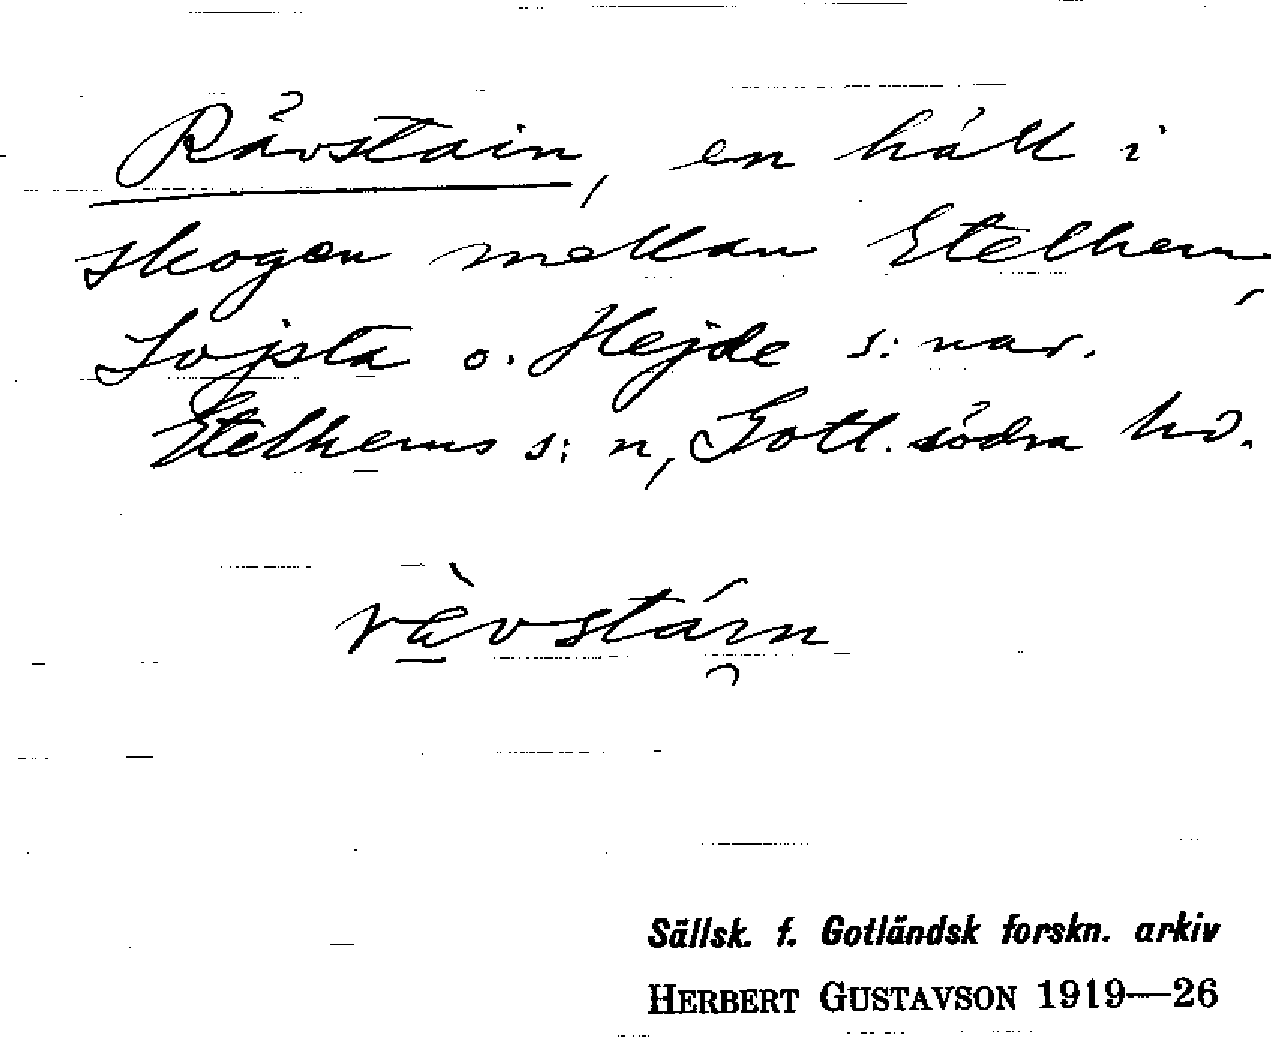 Rävstain, en häll i
skogen mellan Etelhem,
Lojsta o. Hejde s:nar.
Etelhems s:n, Gotl. södra hd.
Sällsk. f. Gotländsk forskn. arkiv
HERBERT GUSTAVSON 1919—26